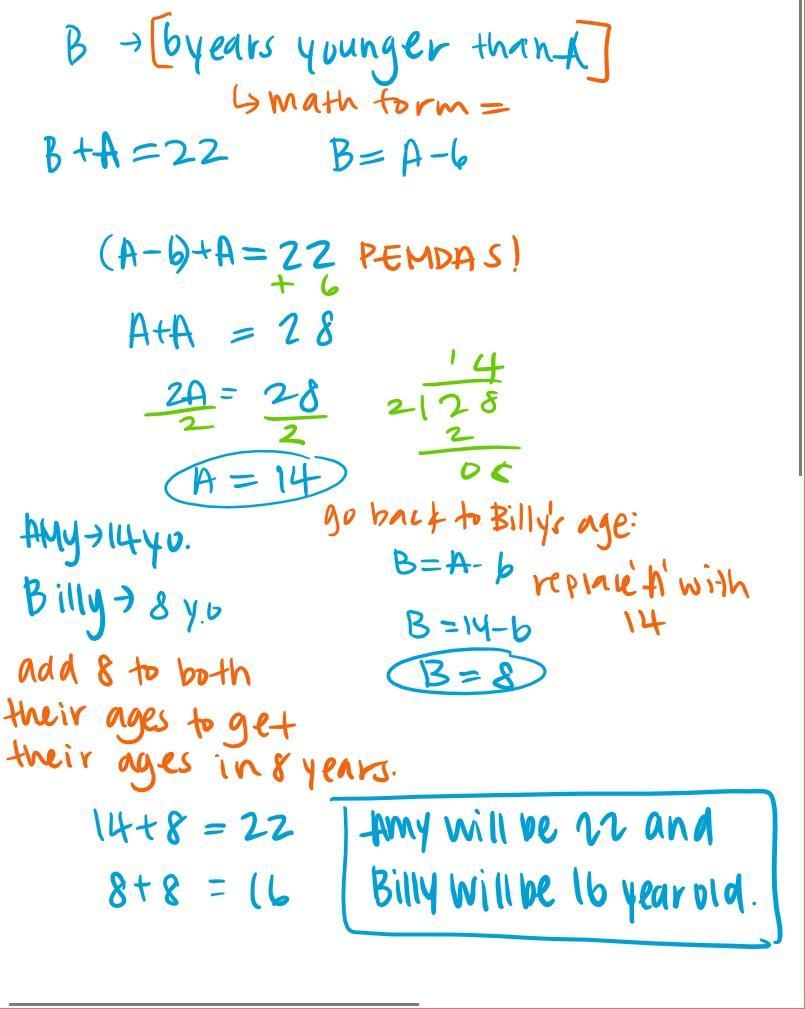 B → [6 years younger than A]
↳ math form =
B + A = 22
B = A - 6
(A - 6) + A = 22 PEMDAS!
+ 6
A+A = 28
2A = 28
2 2
A = 14
14
2 | 28
2
08
Amy → 14 y.o.
Billy → 8 y.o
go back to Billy's age:
B = A - 6
replace 'A' with
14
B = 14 - 6
B = 8
add 8 to both
their ages to get
their ages in 8 years.
14 + 8 = 22
8 + 8 = 16
Amy will be 22 and
Billy will be 16 year old.